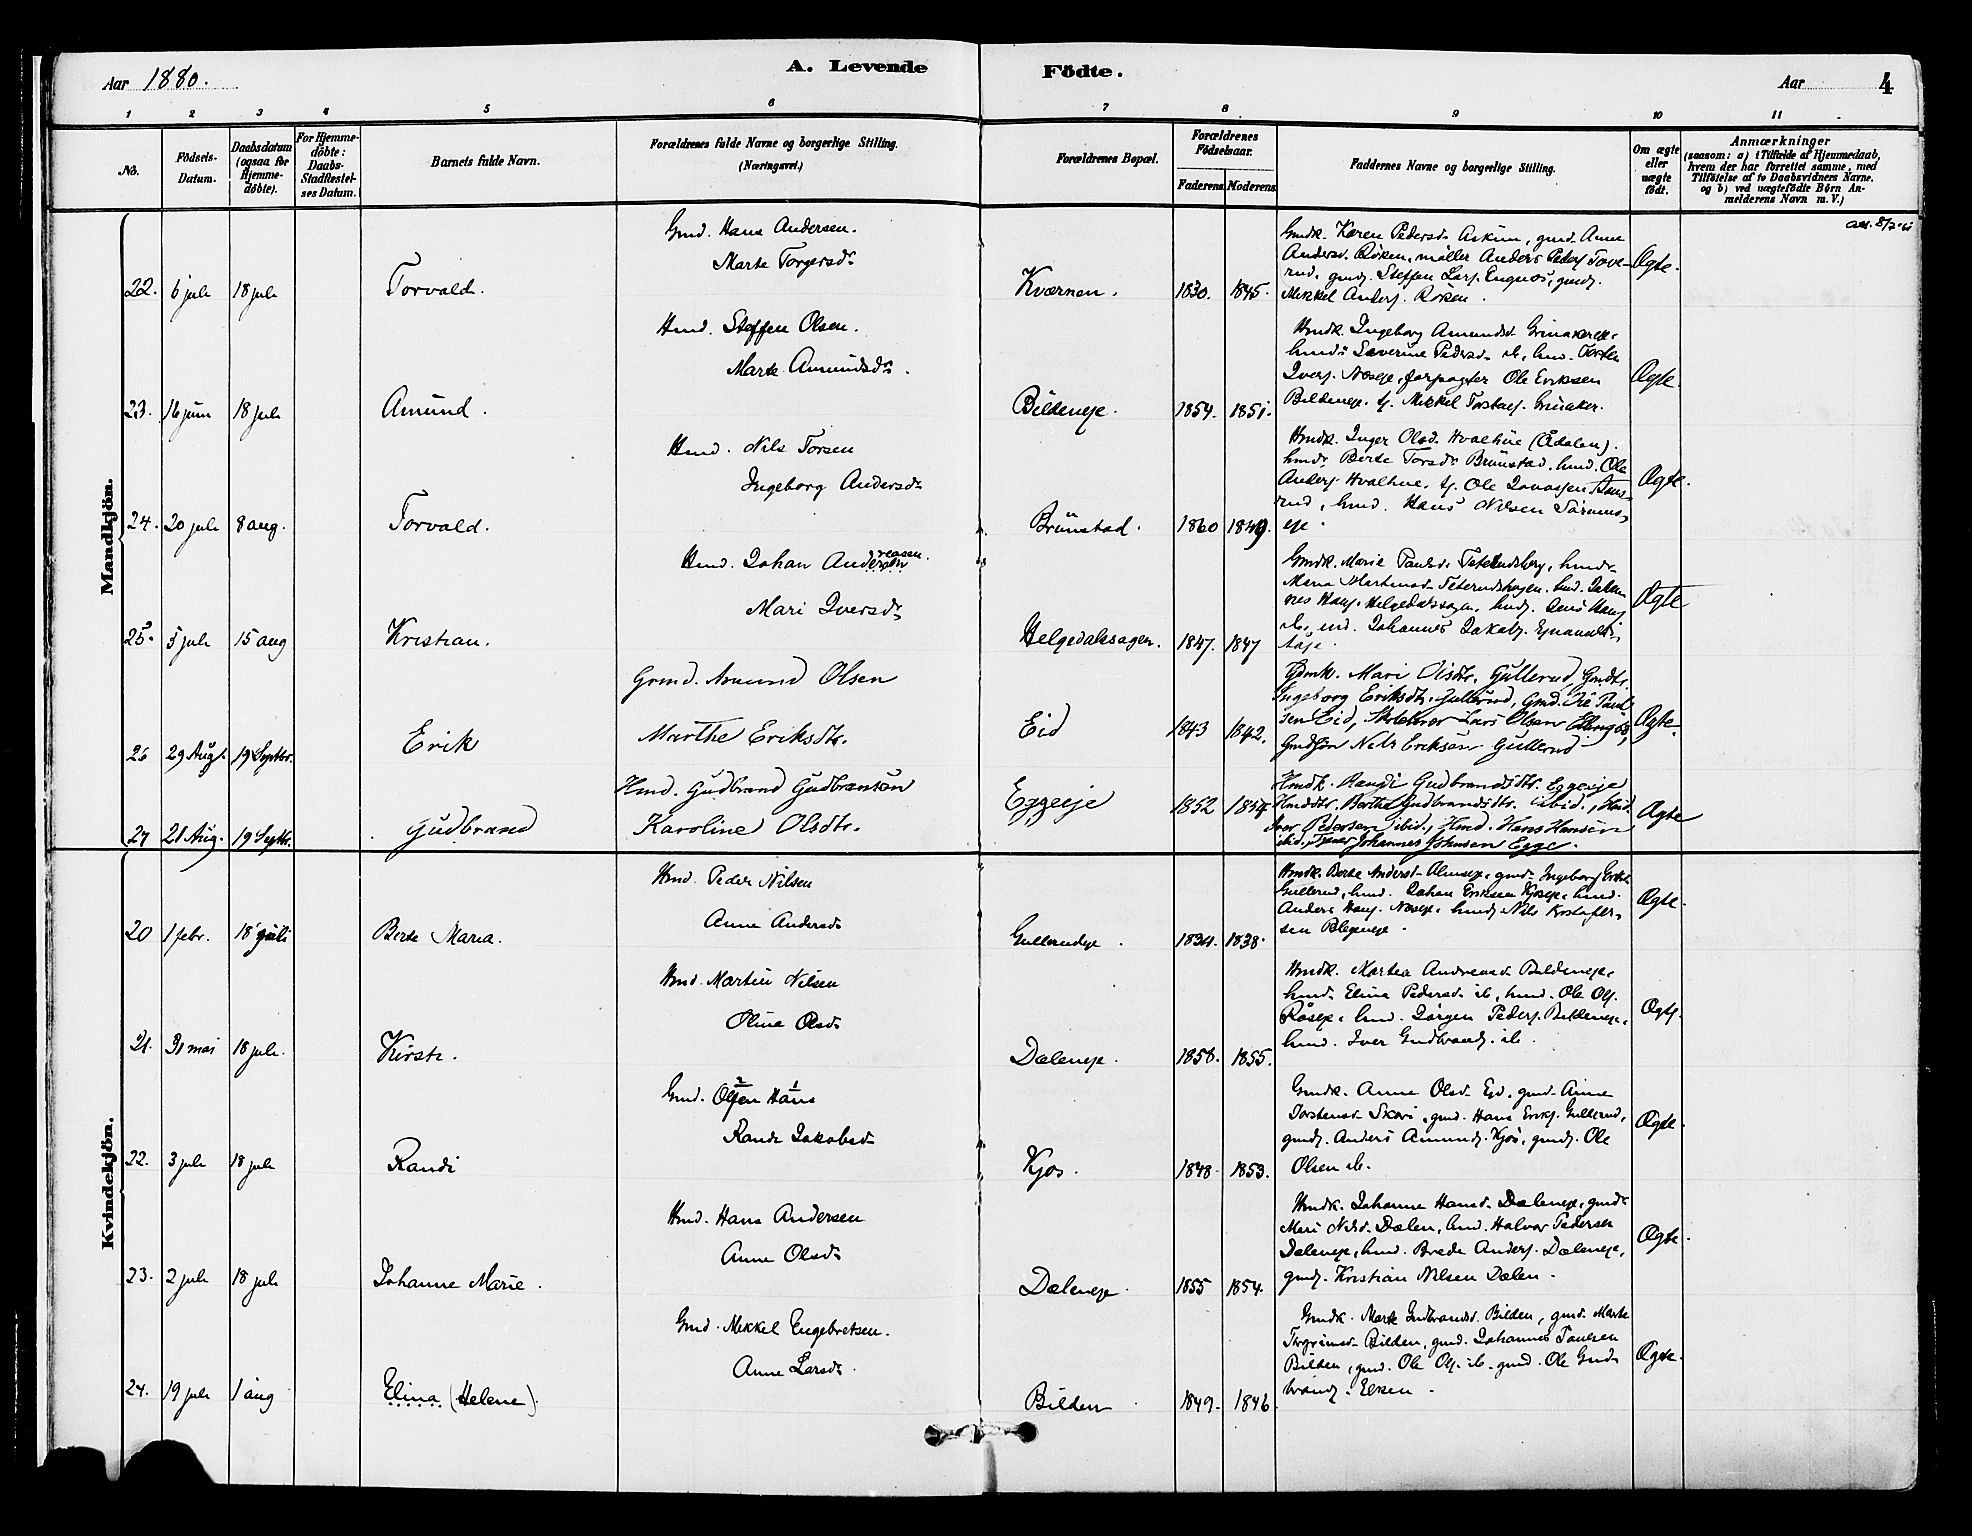 Aar 1880.
A. Levende Födte.
Aar
4
1 2 3 4 5 6 7 8 9 10 11
No.
Födsels-Datum.
Daabsdatum (ogsaa for Hjemme-döbte).
For Hjemme-döbte: Daabs-Stadfæstel-ses Datum.
Barnets fulde Navn.
Forældrenes fulde Navne og borgerlige Stilling. (Næringsvei.)
Forældrenes Bopæl.
Forældrenes Födselsaar.
Faderens Moderens
Faddernes Navne og borgerlige Stilling.
Om ægte eller uægte födt.
Anmærkninger
(saasom: a) i Tilfælde af Hjemmedaab,
hvem der har forrettet samme, med
Tilföielse af to Daabsvidners Navne.
og b) ved uægtefödte Börn An-
melderens Navn m. V.)
Mandkjön.
22. 6 juli 18 juli Torvald.
Gmd. Hans Andersen.
Marte Torgersdr
Kværnen. 1830. 1845.
Gmdk. Karen Pedersd. Askim, gmd. Anne
Andersd. Röken, møller Anders Peders. Tove-
rud, gmds. Steffen Lars. Engnæs, gmds.
Mikkel Anders. Röken.
Ægte.
23. 16 juni 18 juli Amund.
Hmd. Steffen Olsen.
Marte Amundsdr.
Bildeneje. 1854. 1851.
Hmdk. Ingeborg Amundsd. Grinakereje,
hmds Severine Pedersd. ib, hmd. Torsten
Ivers. Næseje, forpagter Ole Eriksen
Bildeneje. Mikkel Torstens. Grinaker.
Ægte.
24. 20 juli 8 aug. Torvald.
Hmd. Nils Torsen
Ingeborg Andersdr
Brünstad. 1860 1849.
Hmdk. Inger Olsd. Hvalhue (Ådalen).
hmds Berte Torsdr Brünstad. hmd. Ole
Anders. Hvalhue, Ole Jonassen
rud, hmd. Hans Nilsen
eje.
Ægte.
25. 5 juli 15 aug Kristian.
Hmd. Johan Andersen reasen.
Mari Iversdr
Helgedalssagen. 1847. 1847
Gmdk. Marie Paulsd.
Maria Martinsd.
nes Hans. Helgedalssagen, hmds. Hans
ib, md. Johannes Jakobs.
Ægte
26 29 Augt. 19 Septbr. Erik
Grmd. Amund Olsen
Marthe Eriksdtr.
Eid 1843 1842.
Gdmk. Mari Olsdtr. Gullerud, Gmdtr.
Ingeborg Eriksdtr. Gullerud, Gmd. Ole Paul-
sen Eid, Lars Olsen
Gmdsön Nils Eriksen Gullerud
Ægte.
27 21 Aug. 19 Septbr. Gudbrand
Hmd. Gudbrand Gudbransen
Karoline Olsdtr.
Eggeeje 1852 1854
Hmdk. Randi Gudbrandsdtr. Eggeeje
Hmddtr. Berthe Gudbrandsdtr. ibid., Hmd.
Iver Pedersen ibid., Hmd. Hans Hansen
ibid., Tjener Johannes Johnsen Egge.
Ægte
Kvindekjön.
20 1 febr. 18 juli Berte Maria.
Hmd. Peder Nilsen
Anne Andersd.
Gullerudeje. 1834. 1838.
Hmdk. Berte Andersd. gmd. Ingeborg Eriksd.
Gullerud, hmd. Johan Eriksen Kjoseje, hmd.
Anders Hans. Næseje, hmds Nils Kristoffer-
sen
Ægte.
21. 31 mai 18 juli. Kirsti.
Hmd. Martin Nilsen
Oline Olsd.
Daleneje. 1858. 1855.
Hmdk. Martea Andreasd. Bildeneje,
hmd. Elina Pedersd. ib, hmd. Ole Ols.
Röseje, hmd. Jörgen Peders. Bildeneje,
hmd. Iver Gudbrands. ib.
Ægte.
22. 3 juli 18 juli Randi
Gmd. Olsen Hans
Randi Jakobsd.
Kjos. 1848. 1853.
Gmdk. Anne Olsd. Ejd, gmd. Anne
Torstensd. Skari, gmd. Hans Eriks. Gullerud,
gmds. Anders Amunds. Kjos, gmds. Ole
Olsen ib.
Ægte.
23. 2 juli 18 juli Johanne Marie.
Hmd. Hans Andersen
Anne Olsd.
Daleneje. 1855 1854.
Hmdk. Johanne Hansd. Dæleneje, gmds
Mari Nilsd. Dælen, hmd. Halvor Pedersen
Dæleneje, hmd. Brede Anders. Dæleneje,
gmds. Kristian Nilsen Dælen.
Ægte.
24. 19 juli 1 aug Elina (Helene).
Gmd. Mikkel Engebretsen.
Anne Larsd.
Bilden 1849. 1846.
Gmdk. Marte Gudbrandsd. Bilden, gmd. Marte
Torgrimsd. Bilden, gmd. Johannes Paulsen
Bilden, gmd. Ole Ols. ib. gmd. Ole Gud-
brands.
Ægte.